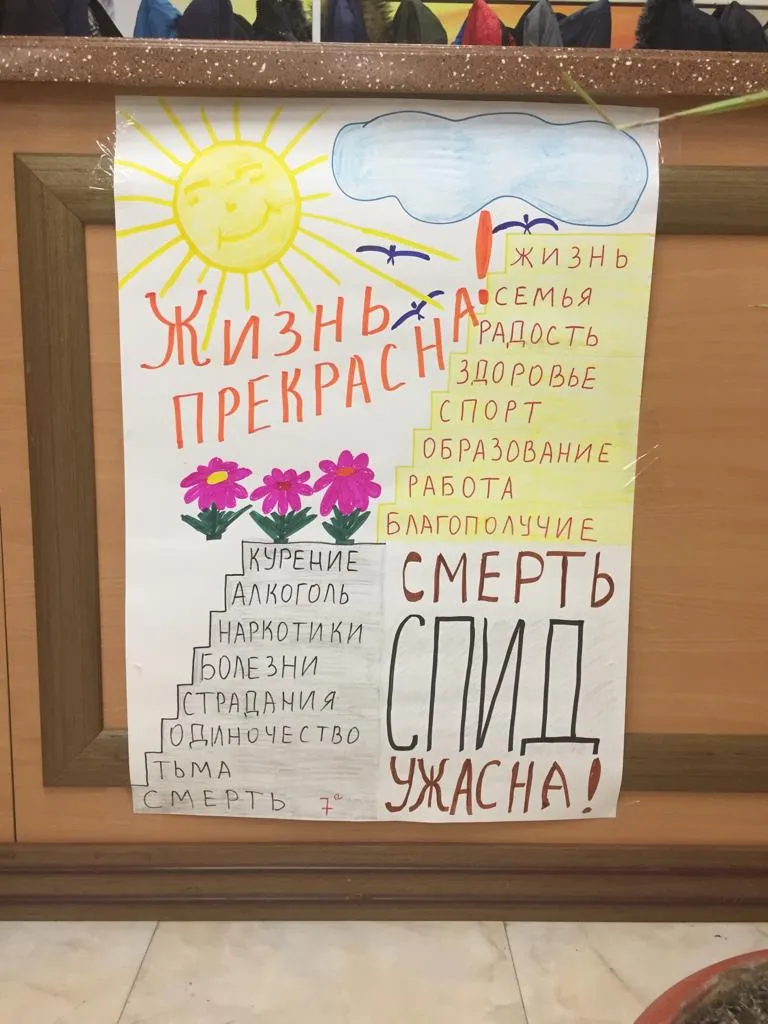 ЖИЗНЬ
ПРЕКРАСНА!
ЖИЗНЬ
СЕМЬЯ
РАДОСТЬ
ЗДОРОВЬЕ
СПОРТ
ОБРАЗОВАНИЕ
РАБОТА
БЛАГОПОЛУЧИЕ
КУРЕНИЕ
АЛКОГОЛЬ
НАРКОТИКИ
БОЛЕЗНИ
СТРАДАНИЯ
ОДИНОЧЕСТВО
ТЬМА
СМЕРТЬ 7а
СМЕРТЬ
СПИД
УЖАСНА!